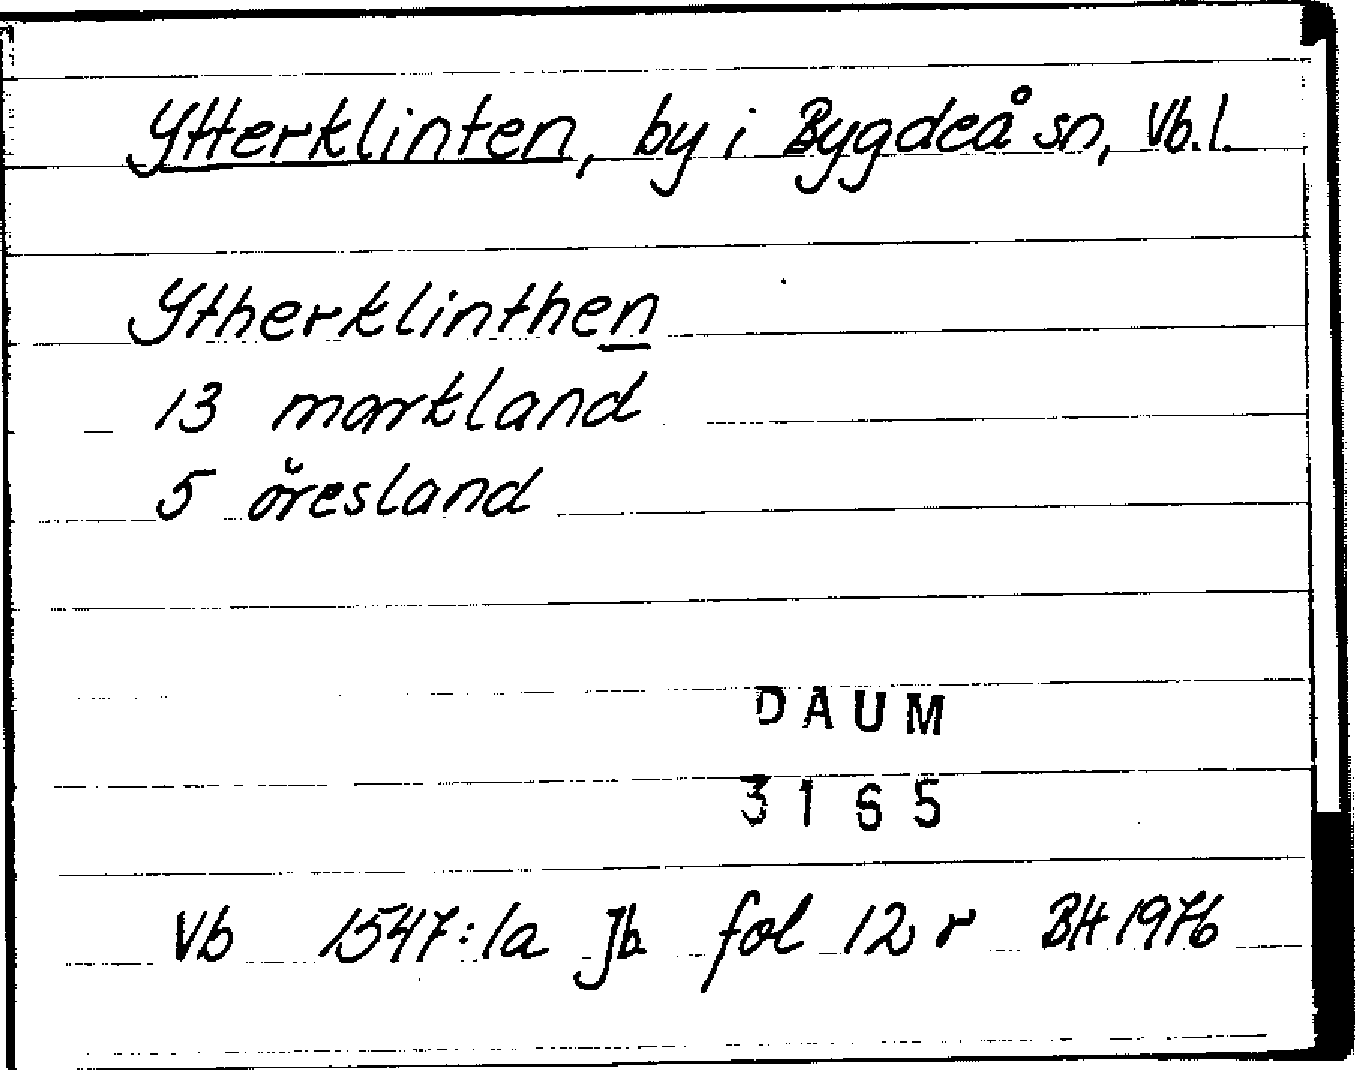 Ytterklinten, by i Bygdeå sn, Vb.l.
Ytherklinthen
13 markland
5 öresland
DAUM
3165
Vb 1547:1a Jb fol 12 r BH 1976